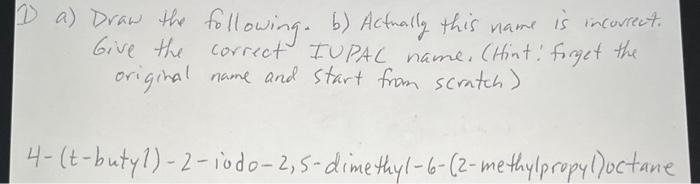 1) a) Draw the following. b) Actually this name is incorrect.
Give the correct IUPAC name. (Hint: forget the
original name and start from scratch)
4-(t-butyl)-2-iodo-2,5-dimethyl-6-(2-methylpropyl)octane